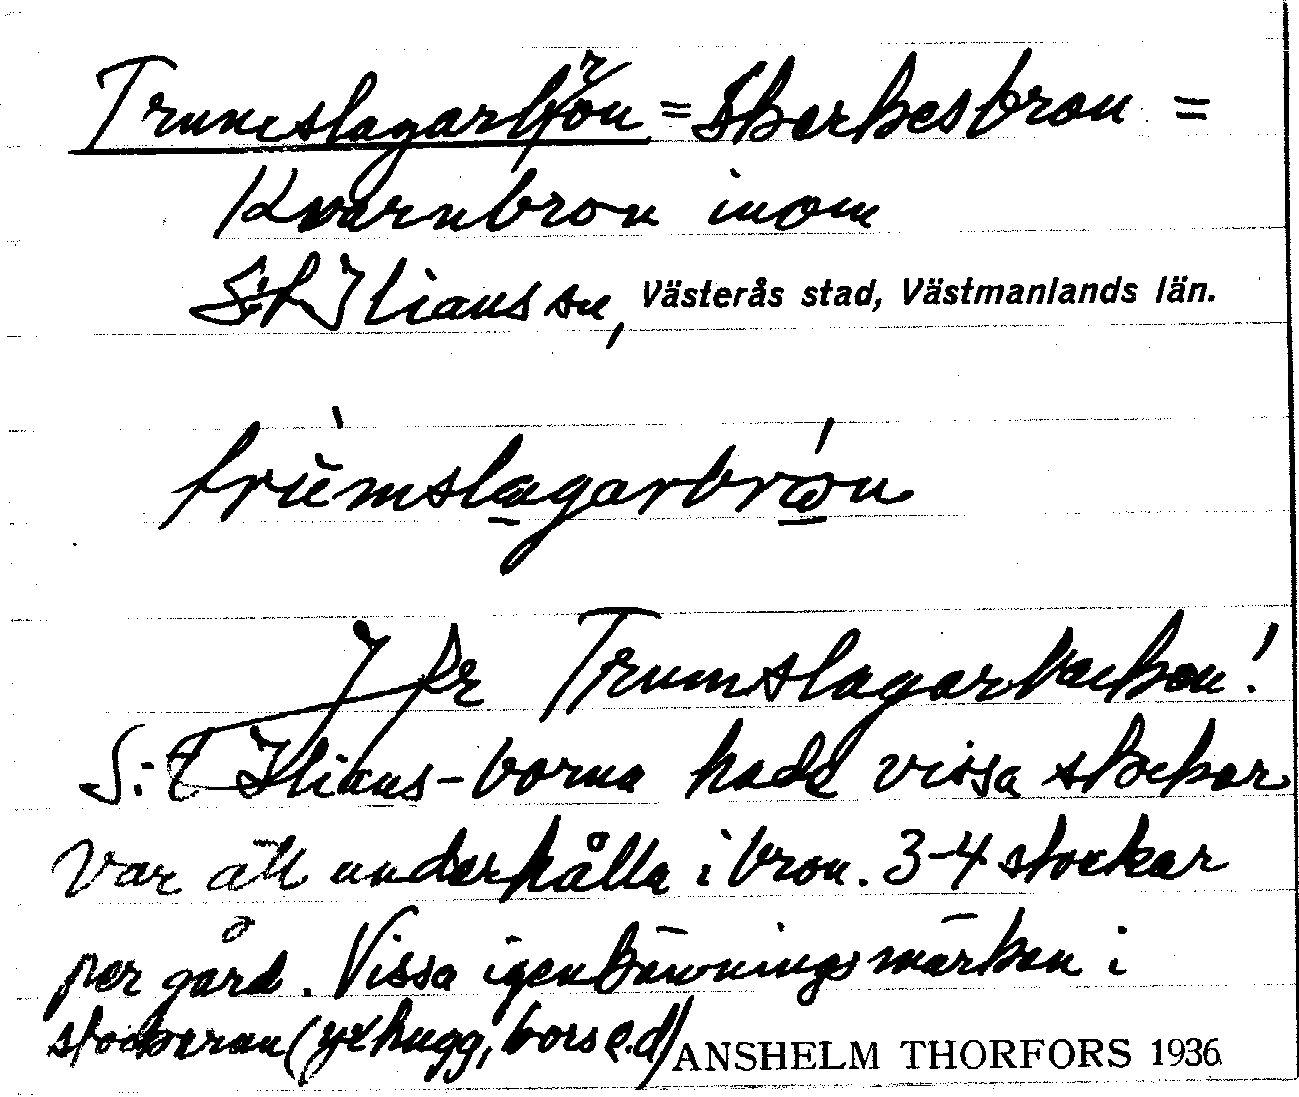 Trumslagarbron = Skerkesbron =
Kvarnbron inom
S:t Ilians sn, Västerås stad, Västmanlands län.
trùmslagarbrón
Jfr Trumslagarbacken!
S:t Ilians-borna hade vissa stockar
var att underhålla i bron. 3-4 stockar
per gård. Vissa igenkänningsmärken i
stockarna (yxhugg, kors e.d) ANSHELM THORFORS 1936